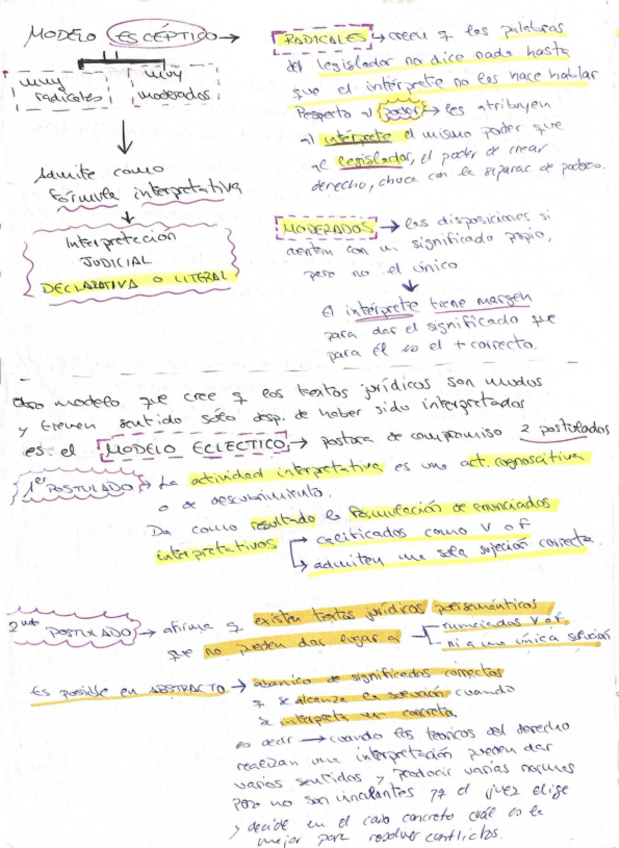 MODELO ESCÉPTICO →
muy radicales
muy moderados
Admite como
fórmula interpretativa
Interpretación
JUDICIAL
DECLARATIVA O LITERAL
RADICALES → creen q las palabras
del legislador no dice nada hasta
que el intérprete no las hace hablar
Respecto al poder → les atribuyen
al intérprete el mismo poder que
al legislador, el poder de crear
derecho, choca con la separac de poderes.
MODERADOS → las disposiciones si
cuentan con un significado propio,
pero no el único
El intérprete tiene margen
para dar el significado que
para él es el + correcto.
Otro modelo que cree q los textos jurídicos son mudos
y tienen sentido sólo desp. de haber sido interpretados
es el MODELO ECLECTICO → postura de compromiso 2 postulados
1er POSTULADO → La actividad interpretativa es una act. cognoscitiva
o de descubrimiento.
Da como resultado la formulación de enunciados
interpretativos → calificados como V o F
→ admiten una sola sujeción correcta.
2ndo POSTULADO → afirma q existen textos jurídicos polisemánticos
que no pueden dar lugar a enunciados V o F
ni a una única solución
Es posible en ABSTRACTO → abanico de significados correctos
q se alcanza la solución cuando
se interpreta en concreto
es decir → cuando los teóricos del derecho
realizan una interpretación pueden dar
varios sentidos y producir varias normas
pero no son vinculantes ya el juez elige
y decide en el caso concreto cuál es la
mejor para resolver conflictos.